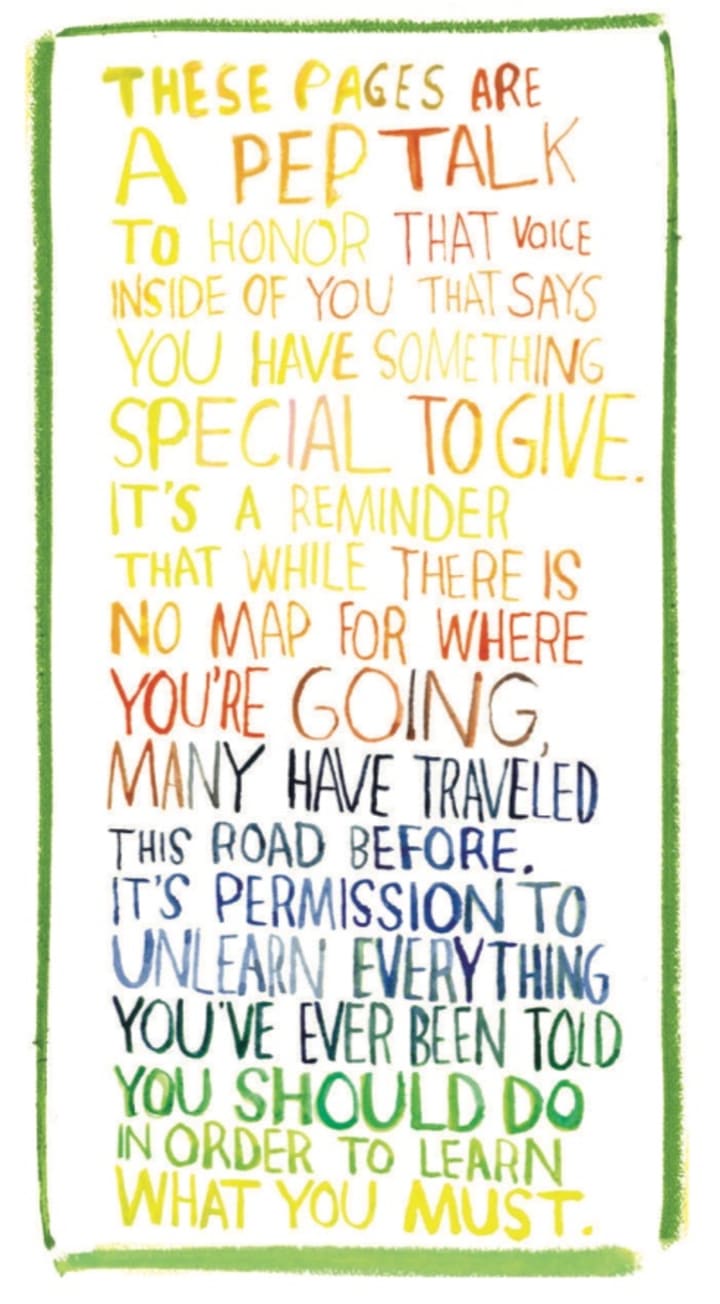 THESE PAGES ARE
A PEP TALK
TO HONOR THAT VOICE
INSIDE OF YOU THAT SAYS
YOU HAVE SOMETHING
SPECIAL TO GIVE.
IT'S A REMINDER
THAT WHILE THERE IS
NO MAP FOR WHERE
YOU'RE GOING,
MANY HAVE TRAVELED
THIS ROAD BEFORE.
IT'S PERMISSION TO
UNLEARN EVERYTHING
YOU'VE EVER BEEN TOLD
YOU SHOULD DO
IN ORDER TO LEARN
WHAT YOU MUST.